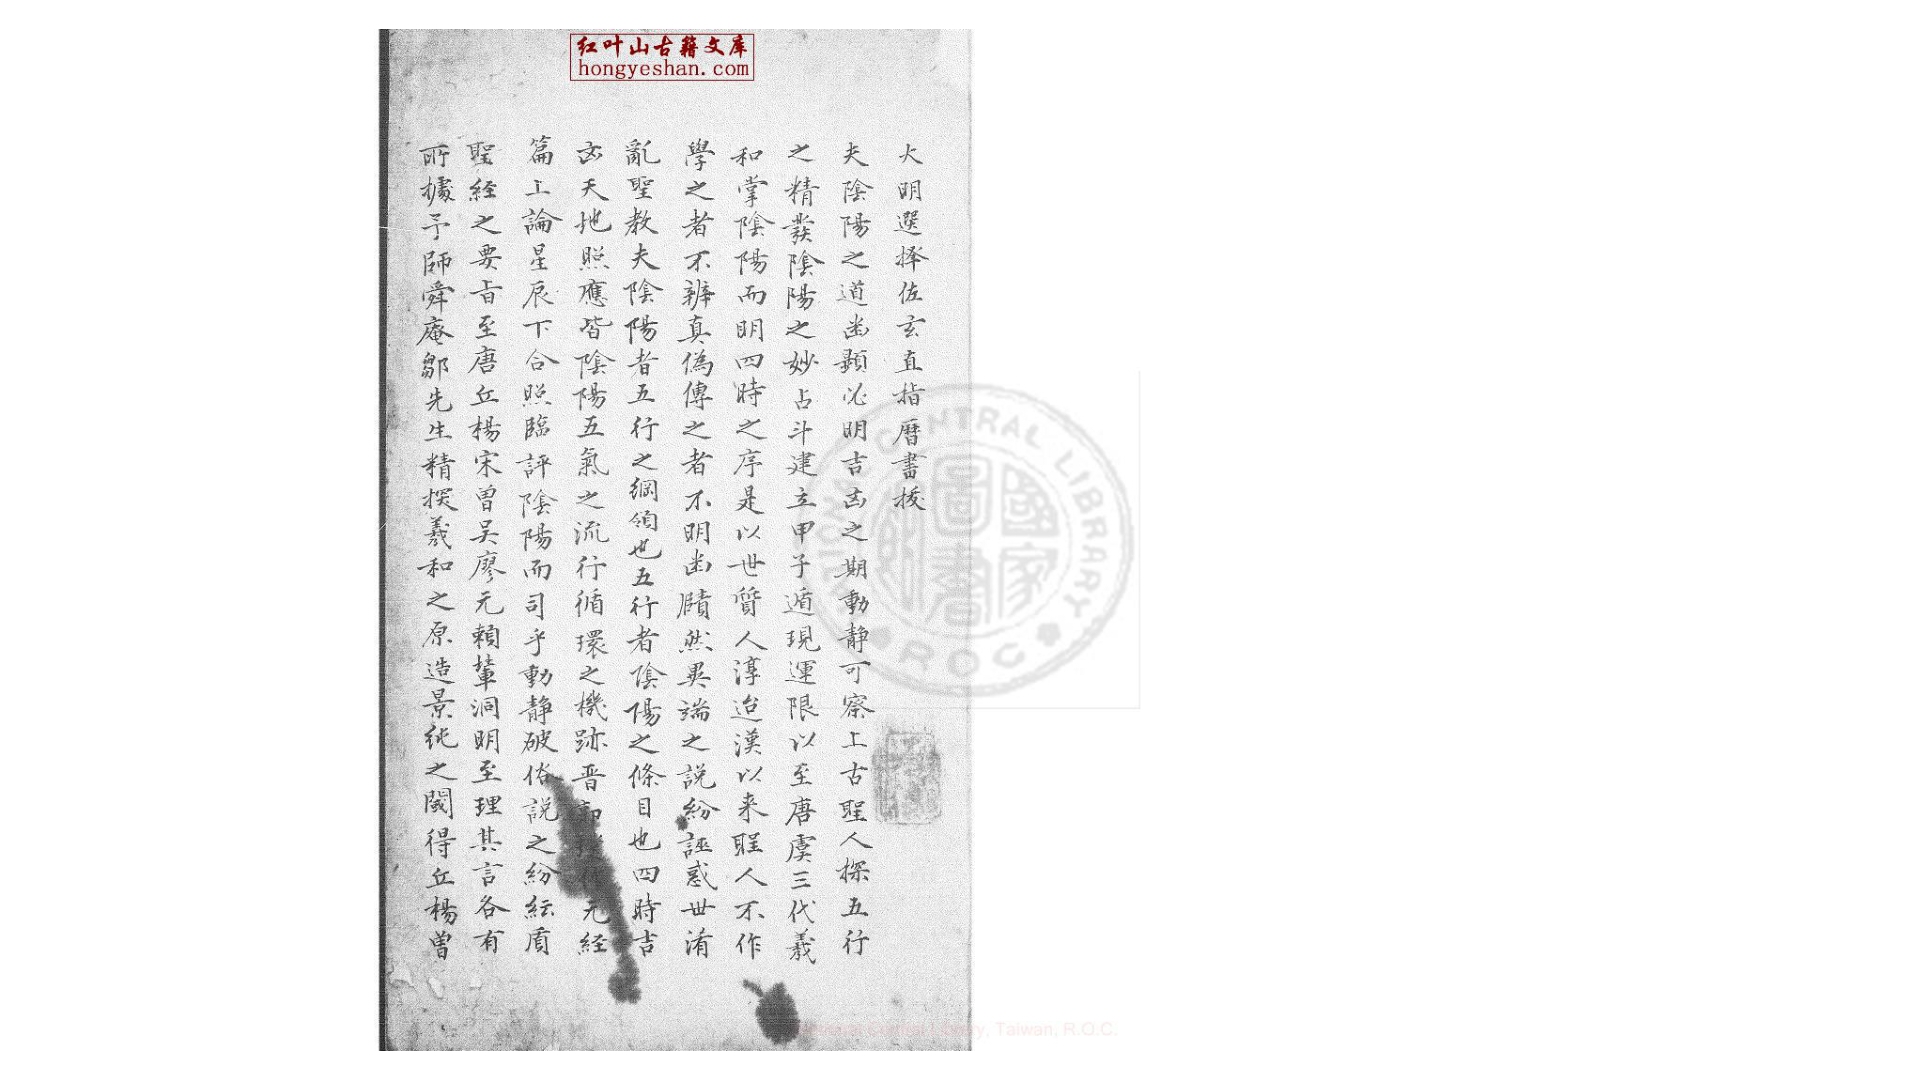 红叶山古籍文库
hongyeshan.com
大明選擇佐玄直指曆書捘
夫陰陽之道幽顯必明吉凶之期動静可察上古聖人探五行
之精發陰陽之妙占斗建立甲子遁現運限以至唐虞三代羲
和掌陰陽而明四時之序是以世質人淳迨漢以来聖人不作
學之者不辨真偽傳之者不明幽賾然異端之說紛誣惑世淆
亂聖教夫陰陽者五行之綱領也五行者陰陽之條目也四時吉
凶天地照應皆陰陽五氣之流行循環之機跡晋郭璞元經
篇上論星辰下合照臨評陰陽而司乎動静破俗說之紛紜盾
聖経之要旨至唐丘楊宋曾吴廖元賴輩洞明至理其言各有
所據予師舜庵鄒先生精探羲和之原造景純之閾得丘楊曾
NATIONAL CENTRAL LIBRARY
R O C
國家圖書館
National Central Library, Taiwan, R.O.C.